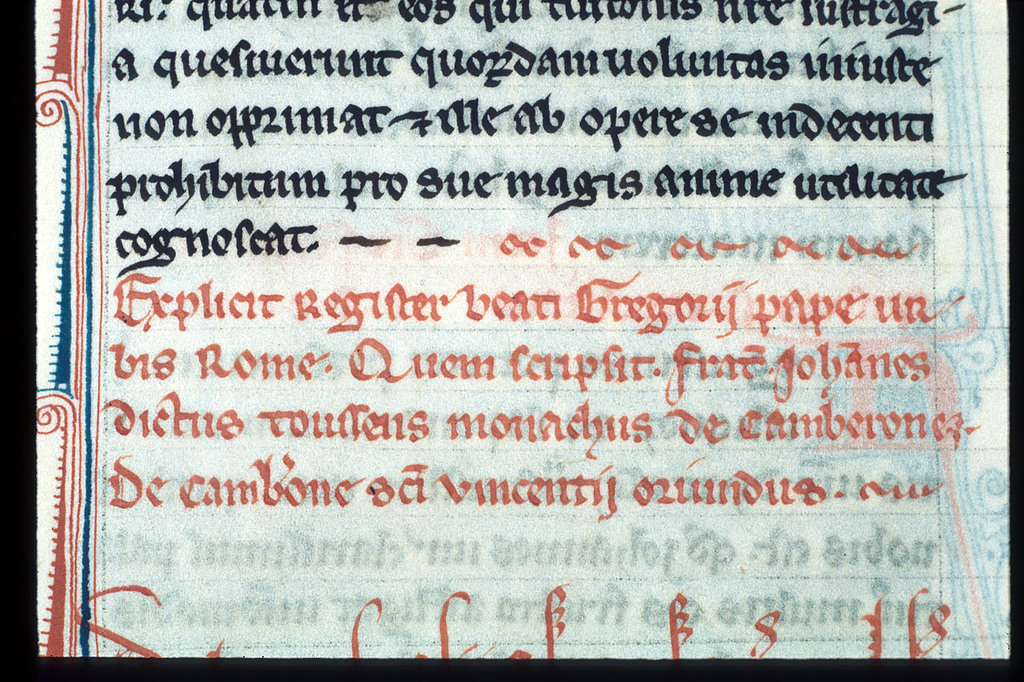 quatin᷒ eos qui
a quesiuerunt quorūdam uoluntas iniuste
non opprimat ⁊ ille ab opere se indecenti
prohibitum pro sue magis anime utilitate
cognoscat.
Explicit Register beati Gregorij pape ur-
bis Rome. Quem scripsit. frat᷒ Joh̄anes
dictus toussens monachus de Camb̄erone ⁊.
De camb᷒one sc̄i vincentij oriundus.